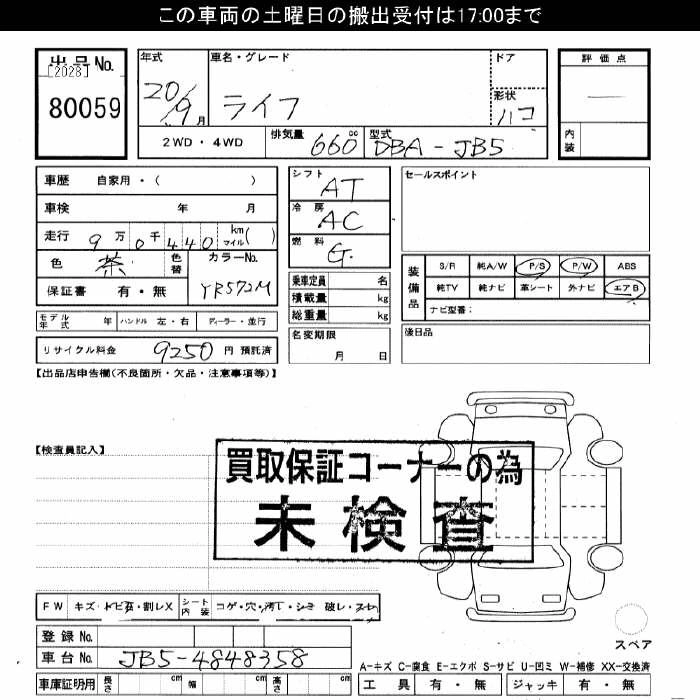 この車両の土曜日の搬出受付は17:00まで
出品No.
[2028]
80059
年式 20/9月
車名・グレード ライフ
ドア
形状 ハコ
2WD・4WD
排気量 660cc
型式 DBA-JB5
評価点
—
内装
車歴 自家用・( )
車検 年 月
走行 9万0千440 km マイル( )
色 茶 色替
カラーNo. YR572M
保証書 有・無
モデル年式 年 ハンドル 左・右 ディーラー・並行
リサイクル料金 9250円 預託済
シフト AT
冷房 AC
燃料 G.
乗車定員 名
積載量 kg
総重量 kg
名変期限 月 日
セールスポイント
装備品
S/R 純A/W P/S P/W ABS
純TV 純ナビ 革シート 外ナビ エアB
ナビ型番:
後日品
【出品店申告欄(不良箇所・欠品・注意事項等)】
【検査員記入】
買取保証コーナーの為
未検査
FW キズ・トビ石・割レX
シート内装 コゲ・穴・汚レ・シミ 破レ・スレ
登録No.
車台No. JB5-4848358
車庫証明用 長さ cm 幅 cm 高さ cm
スペア
A-キズ C-腐食 E-エクボ S-サビ U-凹ミ W-補修 XX-交換済
工具 有・無 ジャッキ 有・無